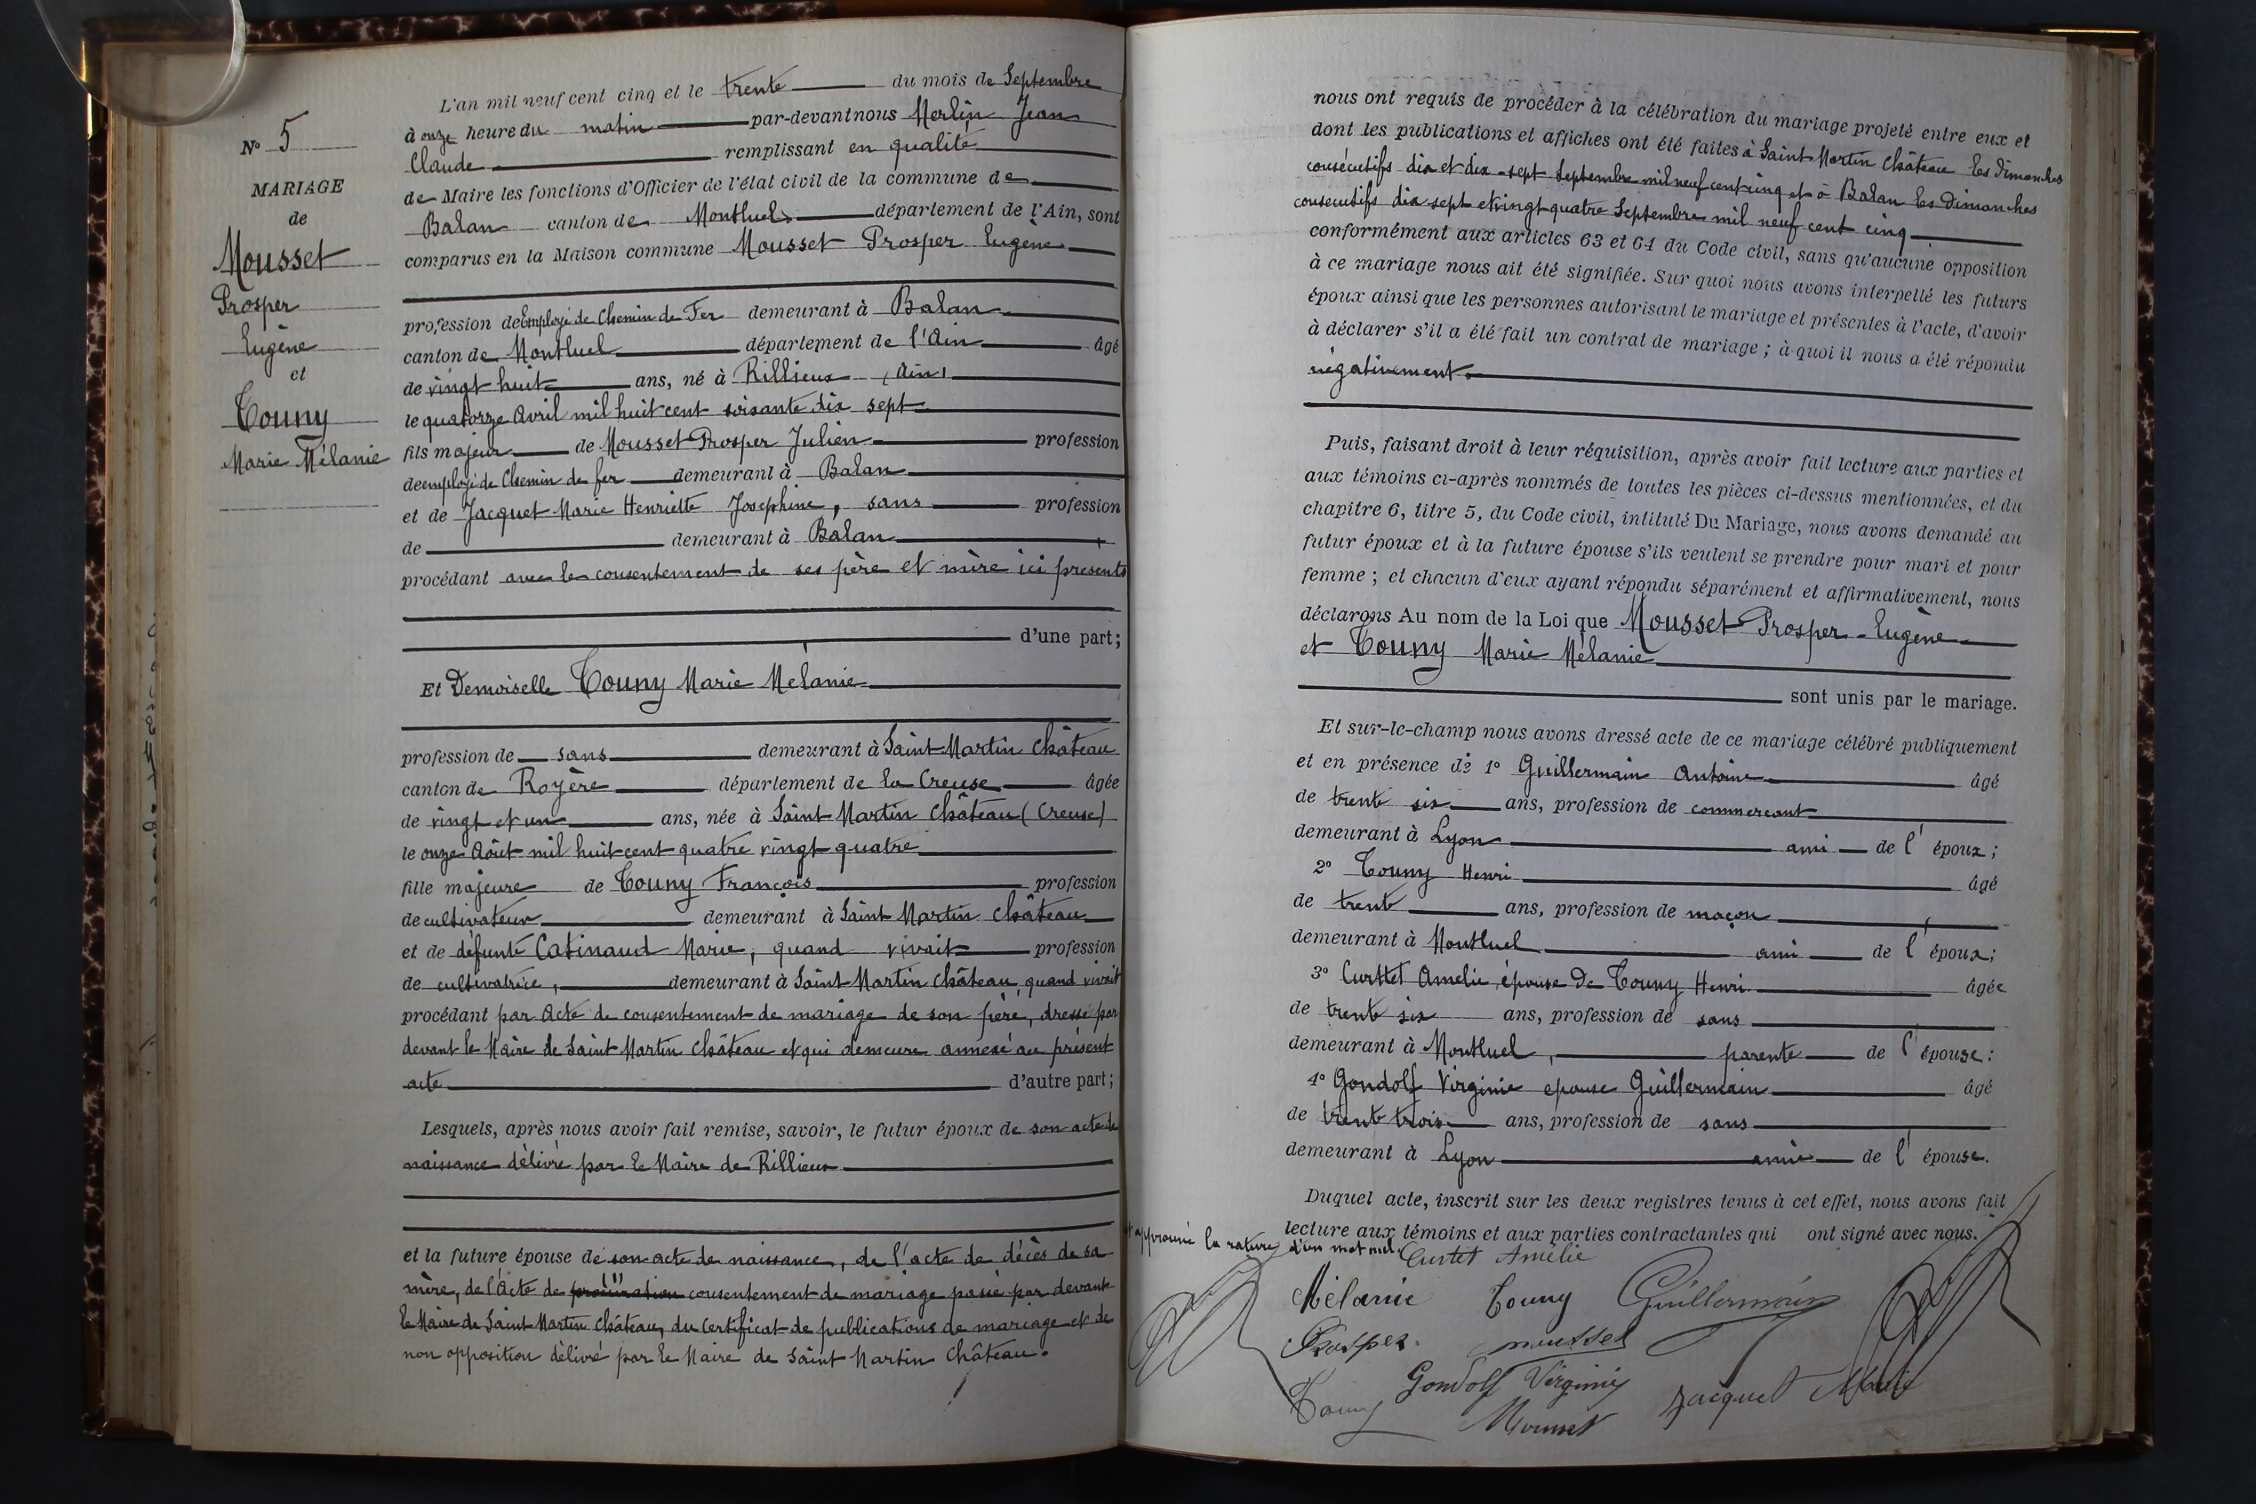 N° 5
MARIAGE
de
Mousset
Prosper
Eugène
et
Touny
Marie Mélanie
L'an mil neuf cent cinq et le trente du mois de Septembre
à onze heure du matin par-devant nous Merlin Jean
Claude remplissant en qualité
de Maire les fonctions d'Officier de l'état civil de la commune de
Balan canton de Montluel département de l'Ain, sont
comparus en la Maison commune Mousset Prosper Eugène
profession de Employé de Chemin de Fer demeurant à Balan
canton de Montluel département de l'Ain âgé
de vingt huit ans, né à Rillieux (Ain)
le quatorze Avril mil huit cent soixante dix sept
fils majeur de Mousset Prosper Julien profession
de employé de Chemin de fer demeurant à Balan
et de Jacquet Marie Henriette Josephine, sans profession
de demeurant à Balan
procédant avec le consentement de ses père et mère ici présents
d'une part;
Et Demoiselle Touny Marie Mélanie
profession de sans demeurant à Saint Martin Château
canton de Royère département de la Creuse âgée
de vingt et un ans, née à Saint Martin Château (Creuse)
le onze Août mil huit cent quatre vingt quatre
fille majeure de Touny François profession
de cultivateur demeurant à Saint Martin Château
et de défunte Catinaud Marie, quand vivait profession
de cultivatrice, demeurant à Saint Martin Château, quand vivait
procédant par Acte de consentement de mariage de son père, dressé par
devant le Maire de Saint Martin Château et qui demeure annexé au présent
acte d'autre part;
Lesquels, après nous avoir fait remise, savoir, le futur époux de son acte de
naissance délivré par le Maire de Rillieux
et la future épouse de son acte de naissance, de l'acte de décès de sa
mère, de l'Acte de procuration consentement de mariage passé par devant
le Maire de Saint Martin Château, du Certificat de publications de mariage et de
non opposition délivré par le Maire de Saint Martin Château.
nous ont requis de procéder à la célébration du mariage projeté entre eux et
dont les publications et affiches ont été faites à Saint Martin Château les dimanches
consécutifs dix et dix-sept Septembre mil neuf cent cinq et à Balan les dimanches
consecutifs dix sept et vingt quatre Septembre mil neuf cent cinq
conformément aux articles 63 et 64 du Code civil, sans qu'aucune opposition
à ce mariage nous ait été signifiée. Sur quoi nous avons interpellé les futurs
époux ainsi que les personnes autorisant le mariage et présentes à l'acte, d'avoir
à déclarer s'il a été fait un contrat de mariage; à quoi il nous a été répondu
négativement.
Puis, faisant droit à leur réquisition, après avoir fait lecture aux parties et
aux témoins ci-après nommés de toutes les pièces ci-dessus mentionnées, et du
chapitre 6, titre 5, du Code civil, intitulé Du Mariage, nous avons demandé au
futur époux et à la future épouse s'ils veulent se prendre pour mari et pour
femme; et chacun d'eux ayant répondu séparément et affirmativement, nous
déclarons Au nom de la Loi que Mousset Prosper-Eugène
et Touny Marie Mélanie
sont unis par le mariage.
Et sur-le-champ nous avons dressé acte de ce mariage célébré publiquement
et en présence de 1° Guillermain Antoine âgé
de trente six ans, profession de commerçant
demeurant à Lyon ami de l'époux;
2° Touny Henri âgé
de trente ans, profession de maçon
demeurant à Montluel ami de l'époux;
3° Curttet Amelie, épouse De Touny Henri âgée
de trente six ans, profession de sans
demeurant à Montluel, parente de l'épouse:
4° Gondolf Virginie epouse Guillermain âgé
de trente trois ans, profession de sans
demeurant à Lyon amie de l'épouse.
Duquel acte, inscrit sur les deux registres tenus à cet effet, nous avons fait
lecture aux témoins et aux parties contractantes qui ont signé avec nous.
approuvé la rature d'un mot nul.
Curtet Amélie
Mélanie Touny Guillermain
Prosper mousset
Gondolf Virginie
Touny Jacquet Marie
Mousset